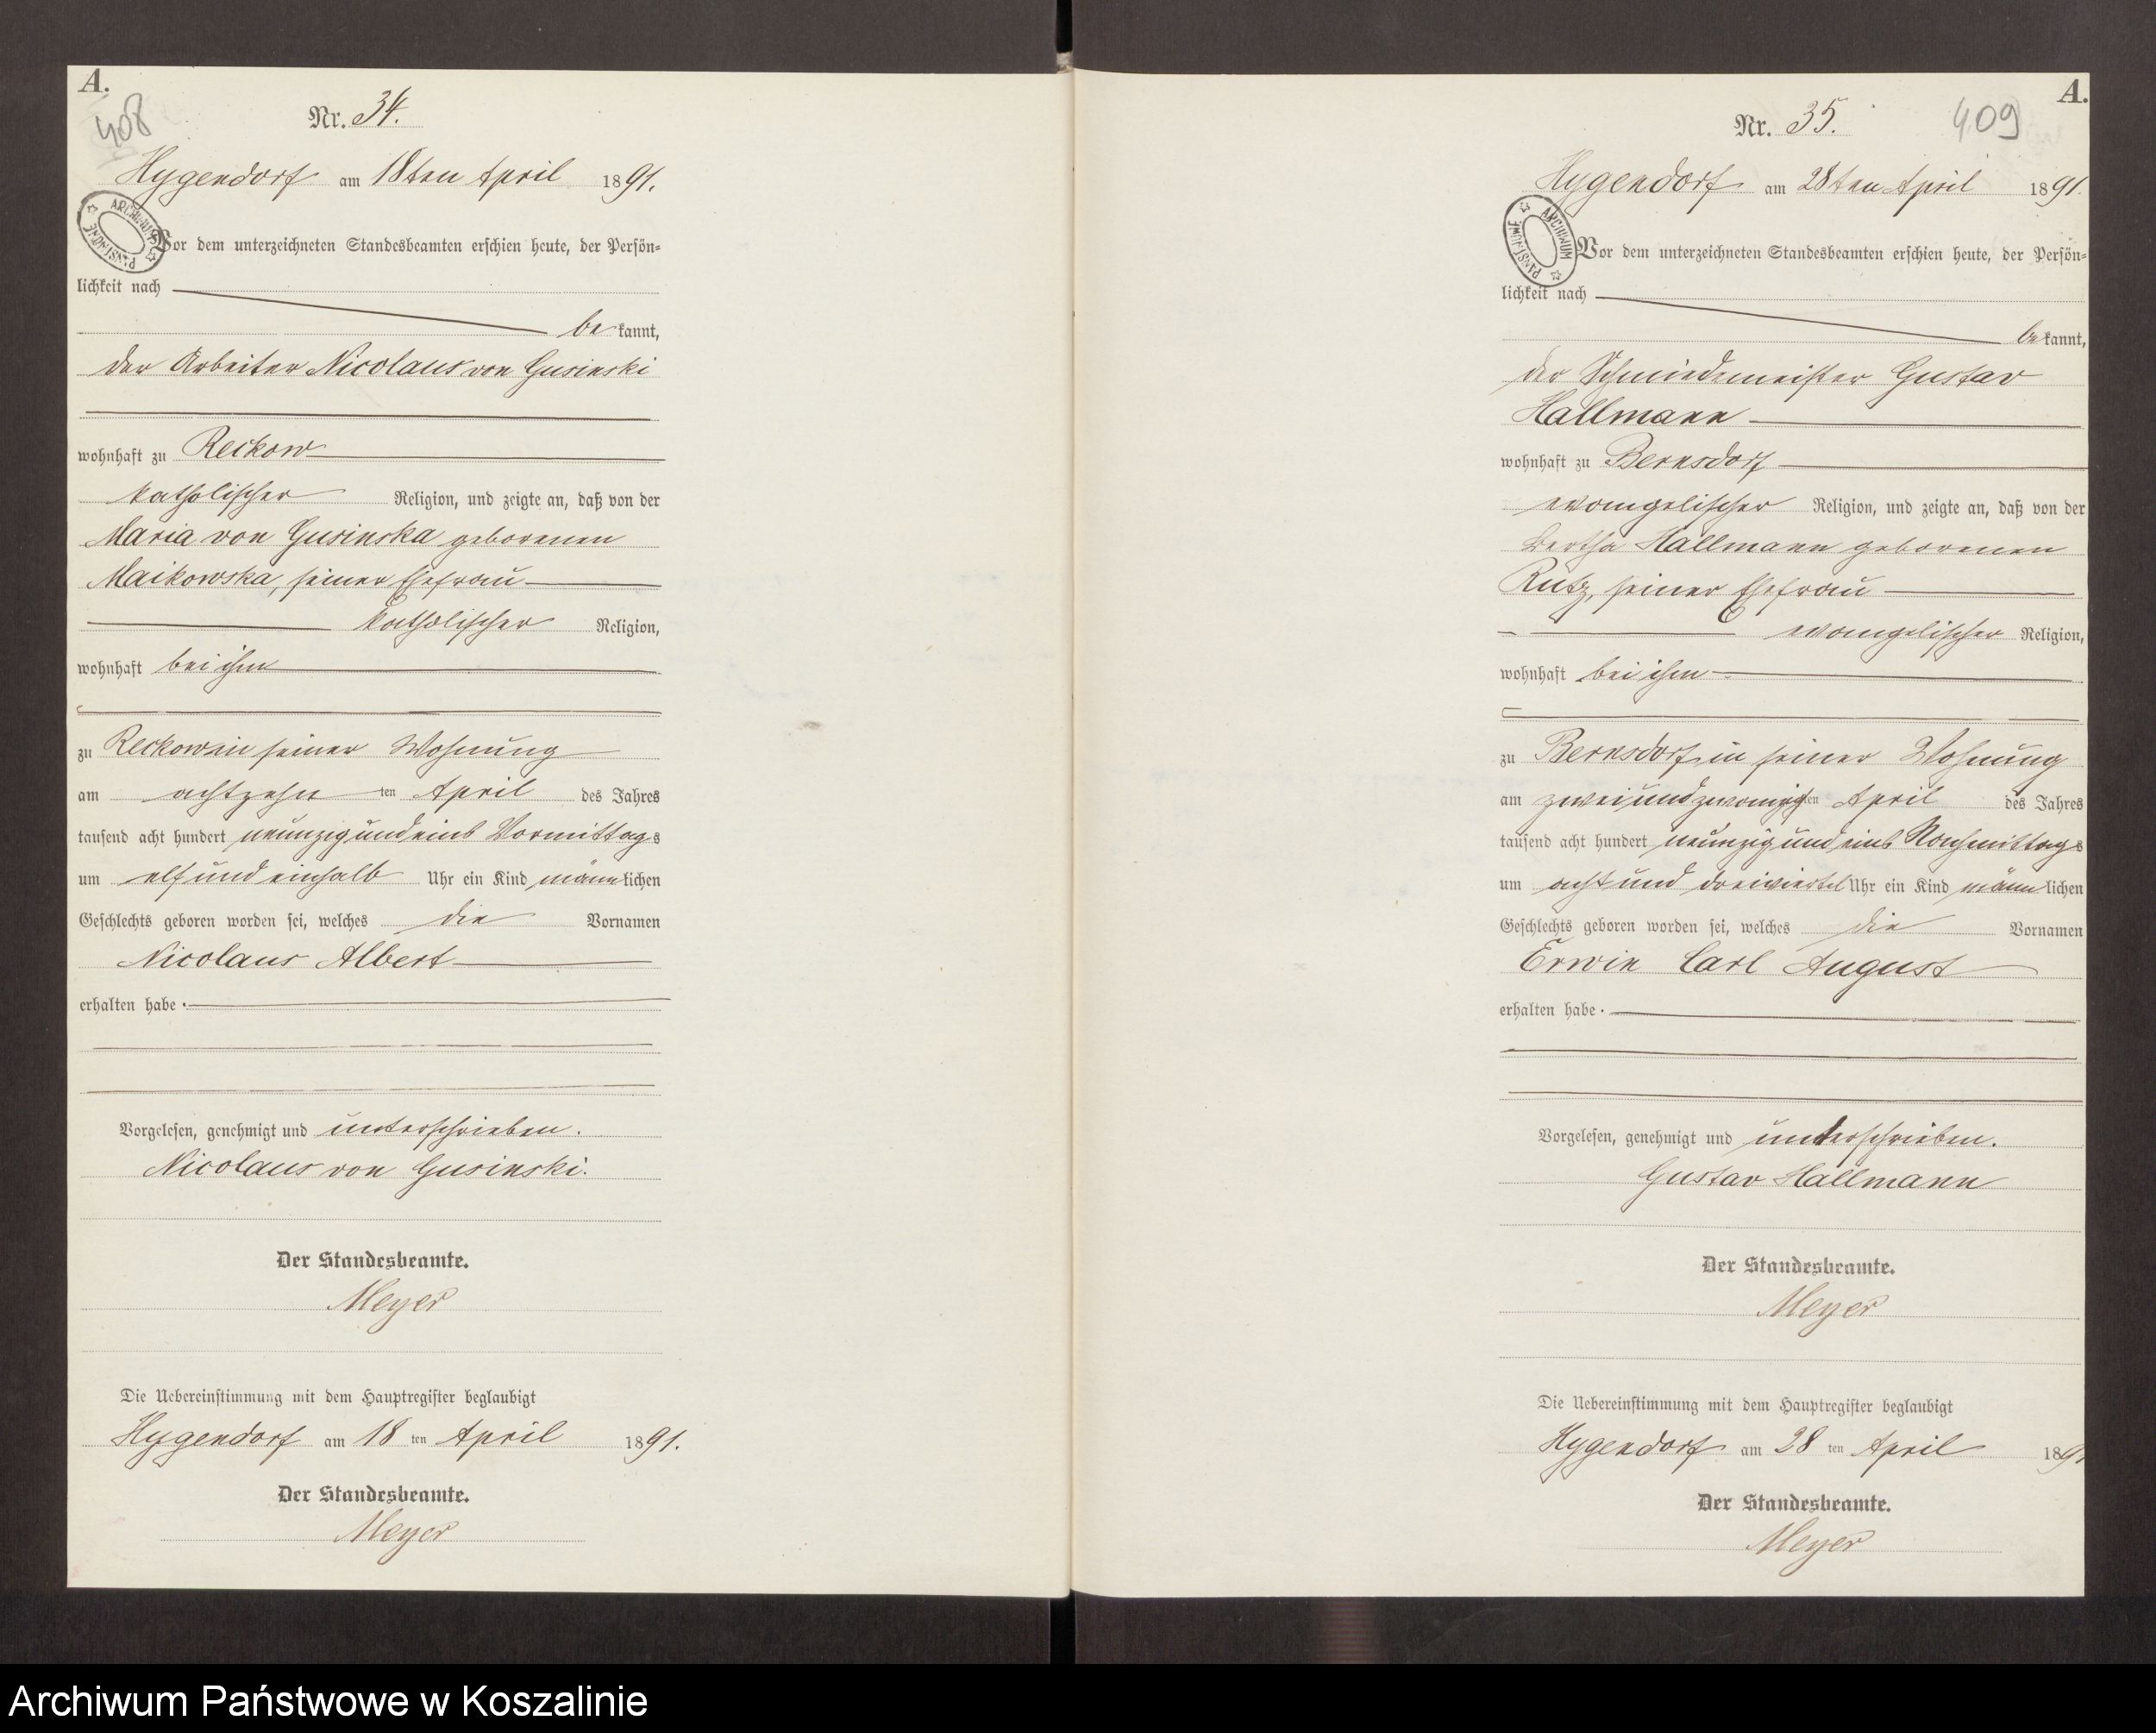 A.
408
Nr. 34.
Hygendorf am 18ten April 1891.
ARCHIWUM PAŃSTWOWE
Vor dem unterzeichneten Standesbeamten erschien heute, der Persön-
lichkeit nach
be kannt,
der Arbeiter Nicolaus von Gusinski
wohnhaft zu Reckow
katholischer Religion, und zeigte an, daß von der
Maria von Gusinska geborenen
Maikowska, seiner Ehefrau
katholischer Religion,
wohnhaft bei ihm
zu Reckow in seiner Wohnung
am achtzehn ten April des Jahres
tausend acht hundert neunzig und eins Vormittags
um elf und einhalb Uhr ein Kind männlichen
Geschlechts geboren worden sei, welches die Vornamen
Nicolaus Albert
erhalten habe.
Vorgelesen, genehmigt und unterschrieben.
Nicolaus von Gusinski.
Der Standesbeamte.
Meyer
Die Uebereinstimmung mit dem Hauptregister beglaubigt
Hygendorf am 18 ten April 1891.
Der Standesbeamte.
Meyer
A.
409
Nr. 35.
Hygendorf am 28ten April 1891.
ARCHIWUM PAŃSTWOWE
Vor dem unterzeichneten Standesbeamten erschien heute, der Persön-
lichkeit nach
be kannt,
der Schmiedemeister Gustav
Hallmann
wohnhaft zu Bernsdorf
evangelischer Religion, und zeigte an, daß von der
Bertha Hallmann geborenen
Rutz, seiner Ehefrau
evangelischer Religion,
wohnhaft bei ihm
zu Bernsdorf in seiner Wohnung
am zweiundzwanzigsten April des Jahres
tausend acht hundert neunzig und eins Nachmittags
um acht und dreiviertel Uhr ein Kind männlichen
Geschlechts geboren worden sei, welches die Vornamen
Erwin Carl August
erhalten habe.
Vorgelesen, genehmigt und unterschrieben.
Gustav Hallmann
Der Standesbeamte.
Meyer
Die Uebereinstimmung mit dem Hauptregister beglaubigt
Hygendorf am 28 ten April 1891
Der Standesbeamte.
Meyer
Archiwum Państwowe w Koszalinie